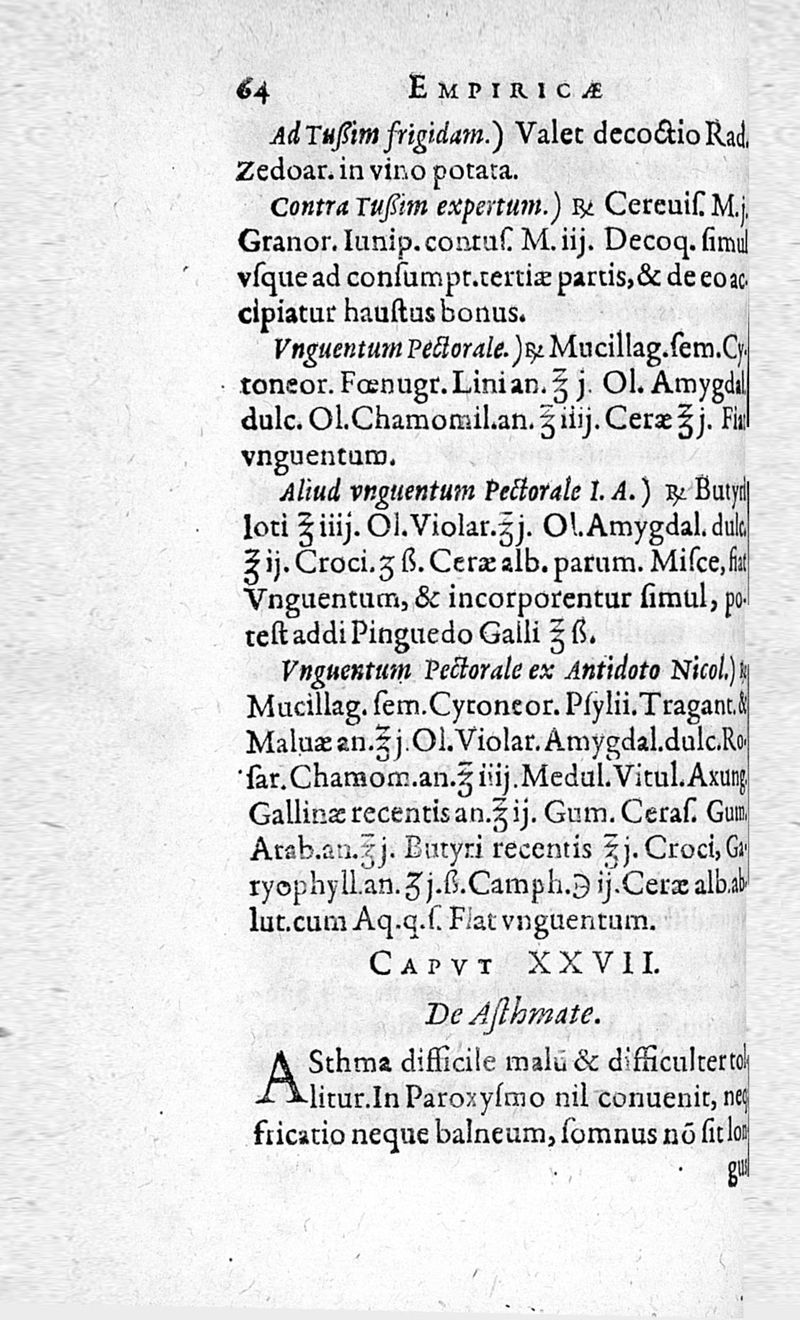 64 EMPIRICÆ
Ad Tußim frigidam.) Valet decoctio Rad.
Zedoar. in vino potata.
Contra Tußim expertum.) ℞ Cereuiſ. M.j.
Granor. Iunip. contuſ. M. iij. Decoq. ſimul
vſque ad conſumpt. tertiæ partis, & de eo ac-
cipiatur hauſtus bonus.
Vnguentum Pectorale.) ℞ Mucillag. ſem. Cy-
toneor. Fœnugr. Lini an. ℥ j. Ol. Amygdal.
dulc. Ol. Chamomil. an. ℥ iiij. Ceræ ℥ j. Fiat
vnguentum.
Aliud vnguentum Pectorale I. A.) ℞ Butyri
loti ℥ iiij. Ol. Violar. ℥ j. Ol. Amygdal. dulc.
℥ ij. Croci. ʒ ß. Ceræ alb. parum. Miſce, fiat
Vnguentum, & incorporentur ſimul, po-
teſt addi Pinguedo Galli ℥ ß.
Vnguentum Pectorale ex Antidoto Nicol.) ℞
Mucillag. ſem. Cytoneor. Pſylii. Tragant. &
Maluæ an. ℥ j. Ol. Violar. Amygdal. dulc. Ro-
ſar. Chamom. an. ℥ iiij. Medul. Vitul. Axung.
Gallinæ recentis an. ℥ ij. Gum. Ceraſ. Gum.
Arab. an. ℥ j. Butyri recentis ℥ j. Croci, Ga-
ryophyll. an. ʒ j. ß. Camph. ℈ ij. Ceræ alb. ab-
lut. cum Aq. q. ſ. Fiat vnguentum.
CAPVT XXVII.
De Aſthmate.
ASthma difficile malū & difficulter tol-
litur. In Paroxyſmo nil conuenit, neq
fricatio neque balneum, ſomnus nō ſit lon-
gus